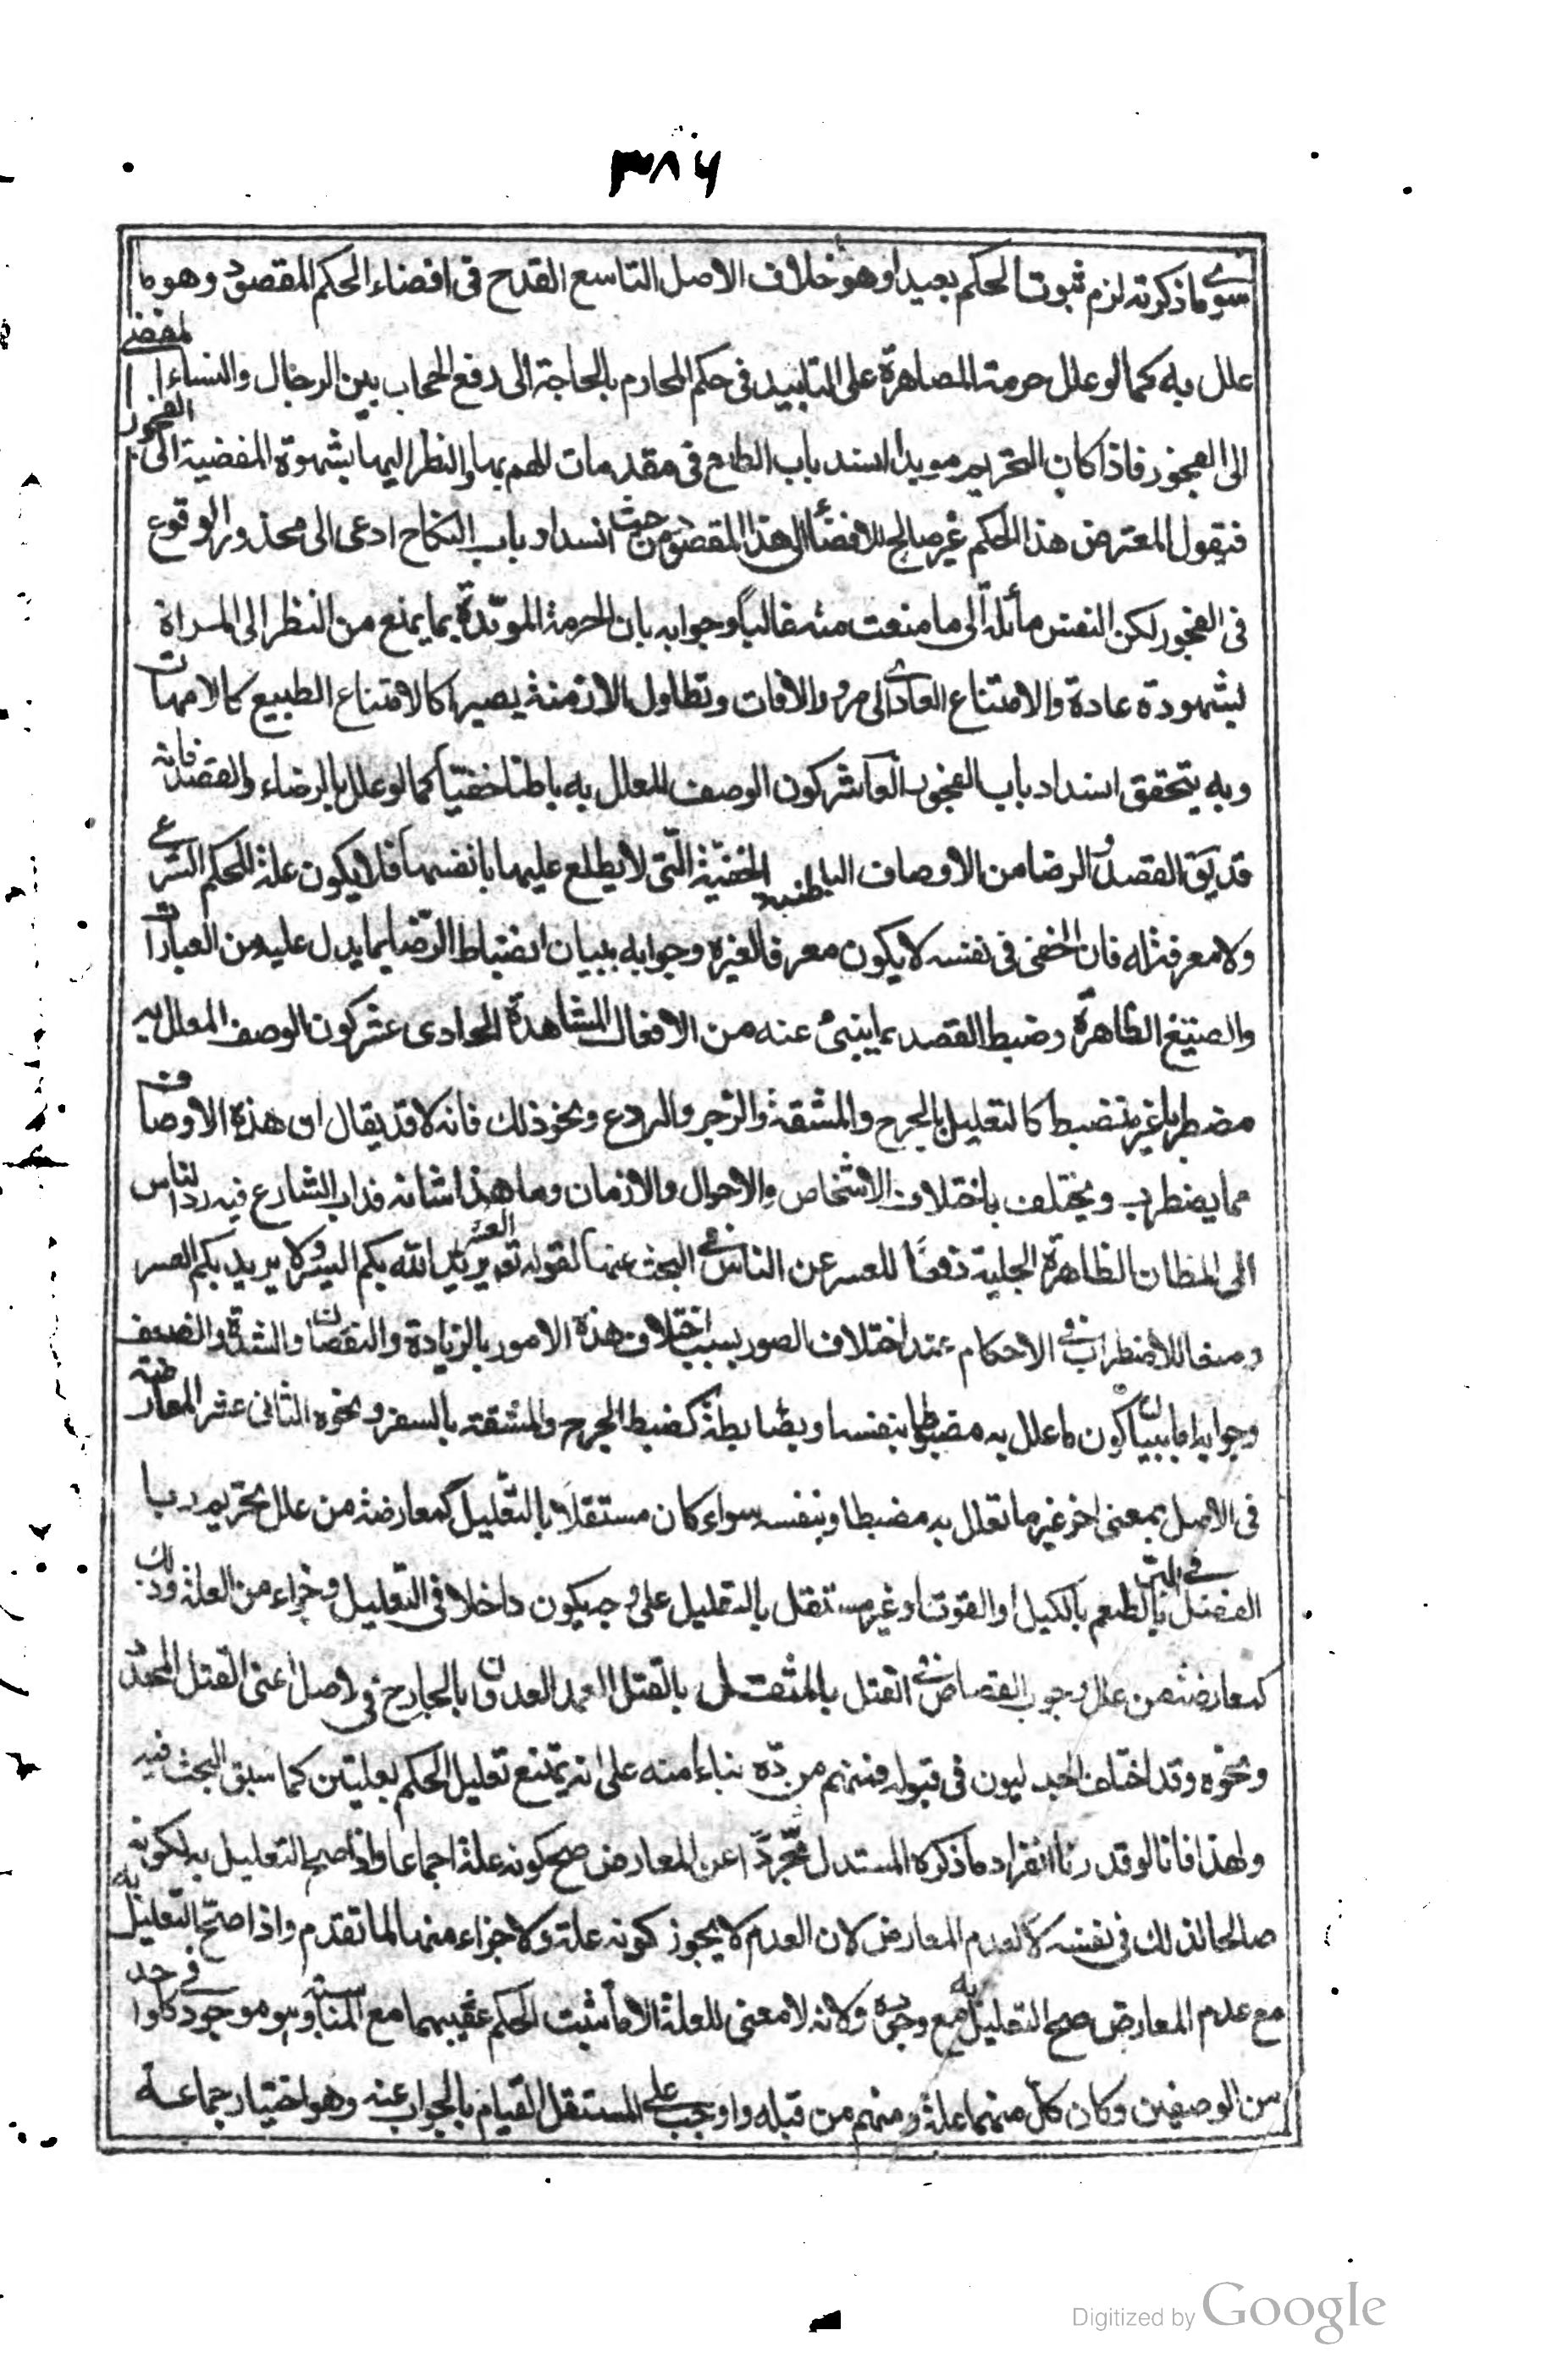 ۳۸۶
سوى ما ذكرته لزم ثبوت الحكم بعيدا وهو خلاف الاصل التاسع القدح فى افضاء الحكم المقصود وهو ما
علل به كما لو علل حرمة المصاهرة على التابيد فى حكم المحارم بالحاجة الى دفع الحجاب بين الرجال والنساء المفضى
الى الفجور فاذا كان التحريم موبدا انسد باب الطمع فى مقدمات الهم بها والنظر اليها بشهوة المفضية الى الفجور
فيقول المعترض هذا الحكم غير صالح للافضاء الى هذا المقصود من حيث انسداد باب النكاح ادعى الى محذور الوقوع
فى الفجور لكن النفس مائلة الى ما منعت منه غالبا وجوابه بان الحرمة الموبدة بما يمنع من النظر الى المراة
بشهوة عادة والامتناع العادى الى مرور الاوقات وتطاول الازمنة يصير كالامتناع الطبيع كالامهات
وبه يتحقق انسداد باب الفجور العاشر كون الوصف المعلل به باطنا خفيا كما لو علل بالرضاء والقصد فانه
قد يق القصد والرضا من الاوصاف الباطنية الخفية التى لا يطلع عليها بانفسها فلا يكون علة للحكم الشرعى
ولا معرفة له فان الخفى فى نفسه لا يكون معرفا لغيره وجوابه ببيان انضباط الرضا بما يدل عليه من العبارات
والصيغ الظاهرة وضبط القصد بما ينبئ عنه من الافعال المشاهدة الحادى عشر كون الوصف المعلل به
مضطربا غير منضبط كالتعليل بالحرج والمشقة والزجر والردع ونحو ذلك فانه قد يقال ان هذه الاوصاف
مما يضطرب ويختلف باختلاف الاشخاص والاحوال والازمان وما هذا شانه فداب الشارع فيه رد الناس
الى المظان الظاهرة الجلية دفعا للعسر عن الناس فى البحث عنها لقوله تع يريد الله بكم اليسر ولا يريد بكم العسر
ومنعا للاضطراب فى الاحكام عند اختلاف الصور بسبب اختلاف هذه الامور بالزيادة والنقصان والشدة والضعف
وجوابه اما ببيان كون ما علل به مضبوطا بنفسه او بضابطة كضبط الحرج والمشقة بالسفر ونحوه الثانى عشر المعارضة
فى الاصل بمعنى اخر غير ما تعلل به مضبطا وبنفسه سواء كان مستقلا بالتعليل كمعارضة من علل تحريم ربا
الفضل فى البر بالطعم بالكيل او القوت او غير مستقل بالتعليل على وجه يكون داخلا فى التعليل وجزاء من العلة وذلك
كمعارضة من علل وجوب القصاص فى القتل بالمثقل بالقتل العمد العدوان بالجارح فى الاصل اعنى القتل المحدد
ونحوه وقد اختلف الجدليون فى قبوله فمنهم من رده بناء منه على انه يمتنع تعليل الحكم بعلتين كما سبق البحث فيه
ولهذا فانا لو قدرنا انفراد ما ذكره المستدل مجردا عن المعارض صح كونه علة اجماعا واذا صح التعليل به لكونه
صالحا لذلك فى نفسه لا لعدم المعارض لان العدم لا يجوز كونه علة ولا جزاء منها لما تقدم واذا صح التعليل به
مع عدم المعارض صح التعليل به مع وجوده ولانه لا معنى للعلة الا ما ثبت الحكم عقيبها مع المناسبة وهو موجود فى كل واحد
من الوصفين وكان كل منهما علة ومنهم من قبله واوجب على المستقل القيام بالجواب عنه وهو اختيار جماعة
Digitized by Google